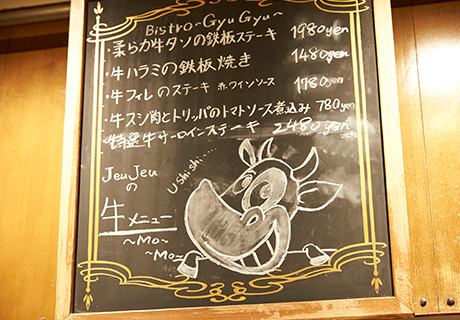 Bistro-GyuGyu~
・柔らか牛タンの鉄板ステーキ 1980yen
・牛ハラミの鉄板焼き 1480yen
・牛フィレのステーキ 赤ワインソース 1780yen
・牛スジ肉とトリッパのトマトソース煮込み 780yen
・特選牛サーロインステーキ 2480yen
Ushishi....
JeuJeu
の
牛メニュー
~Mo~
~Mo~